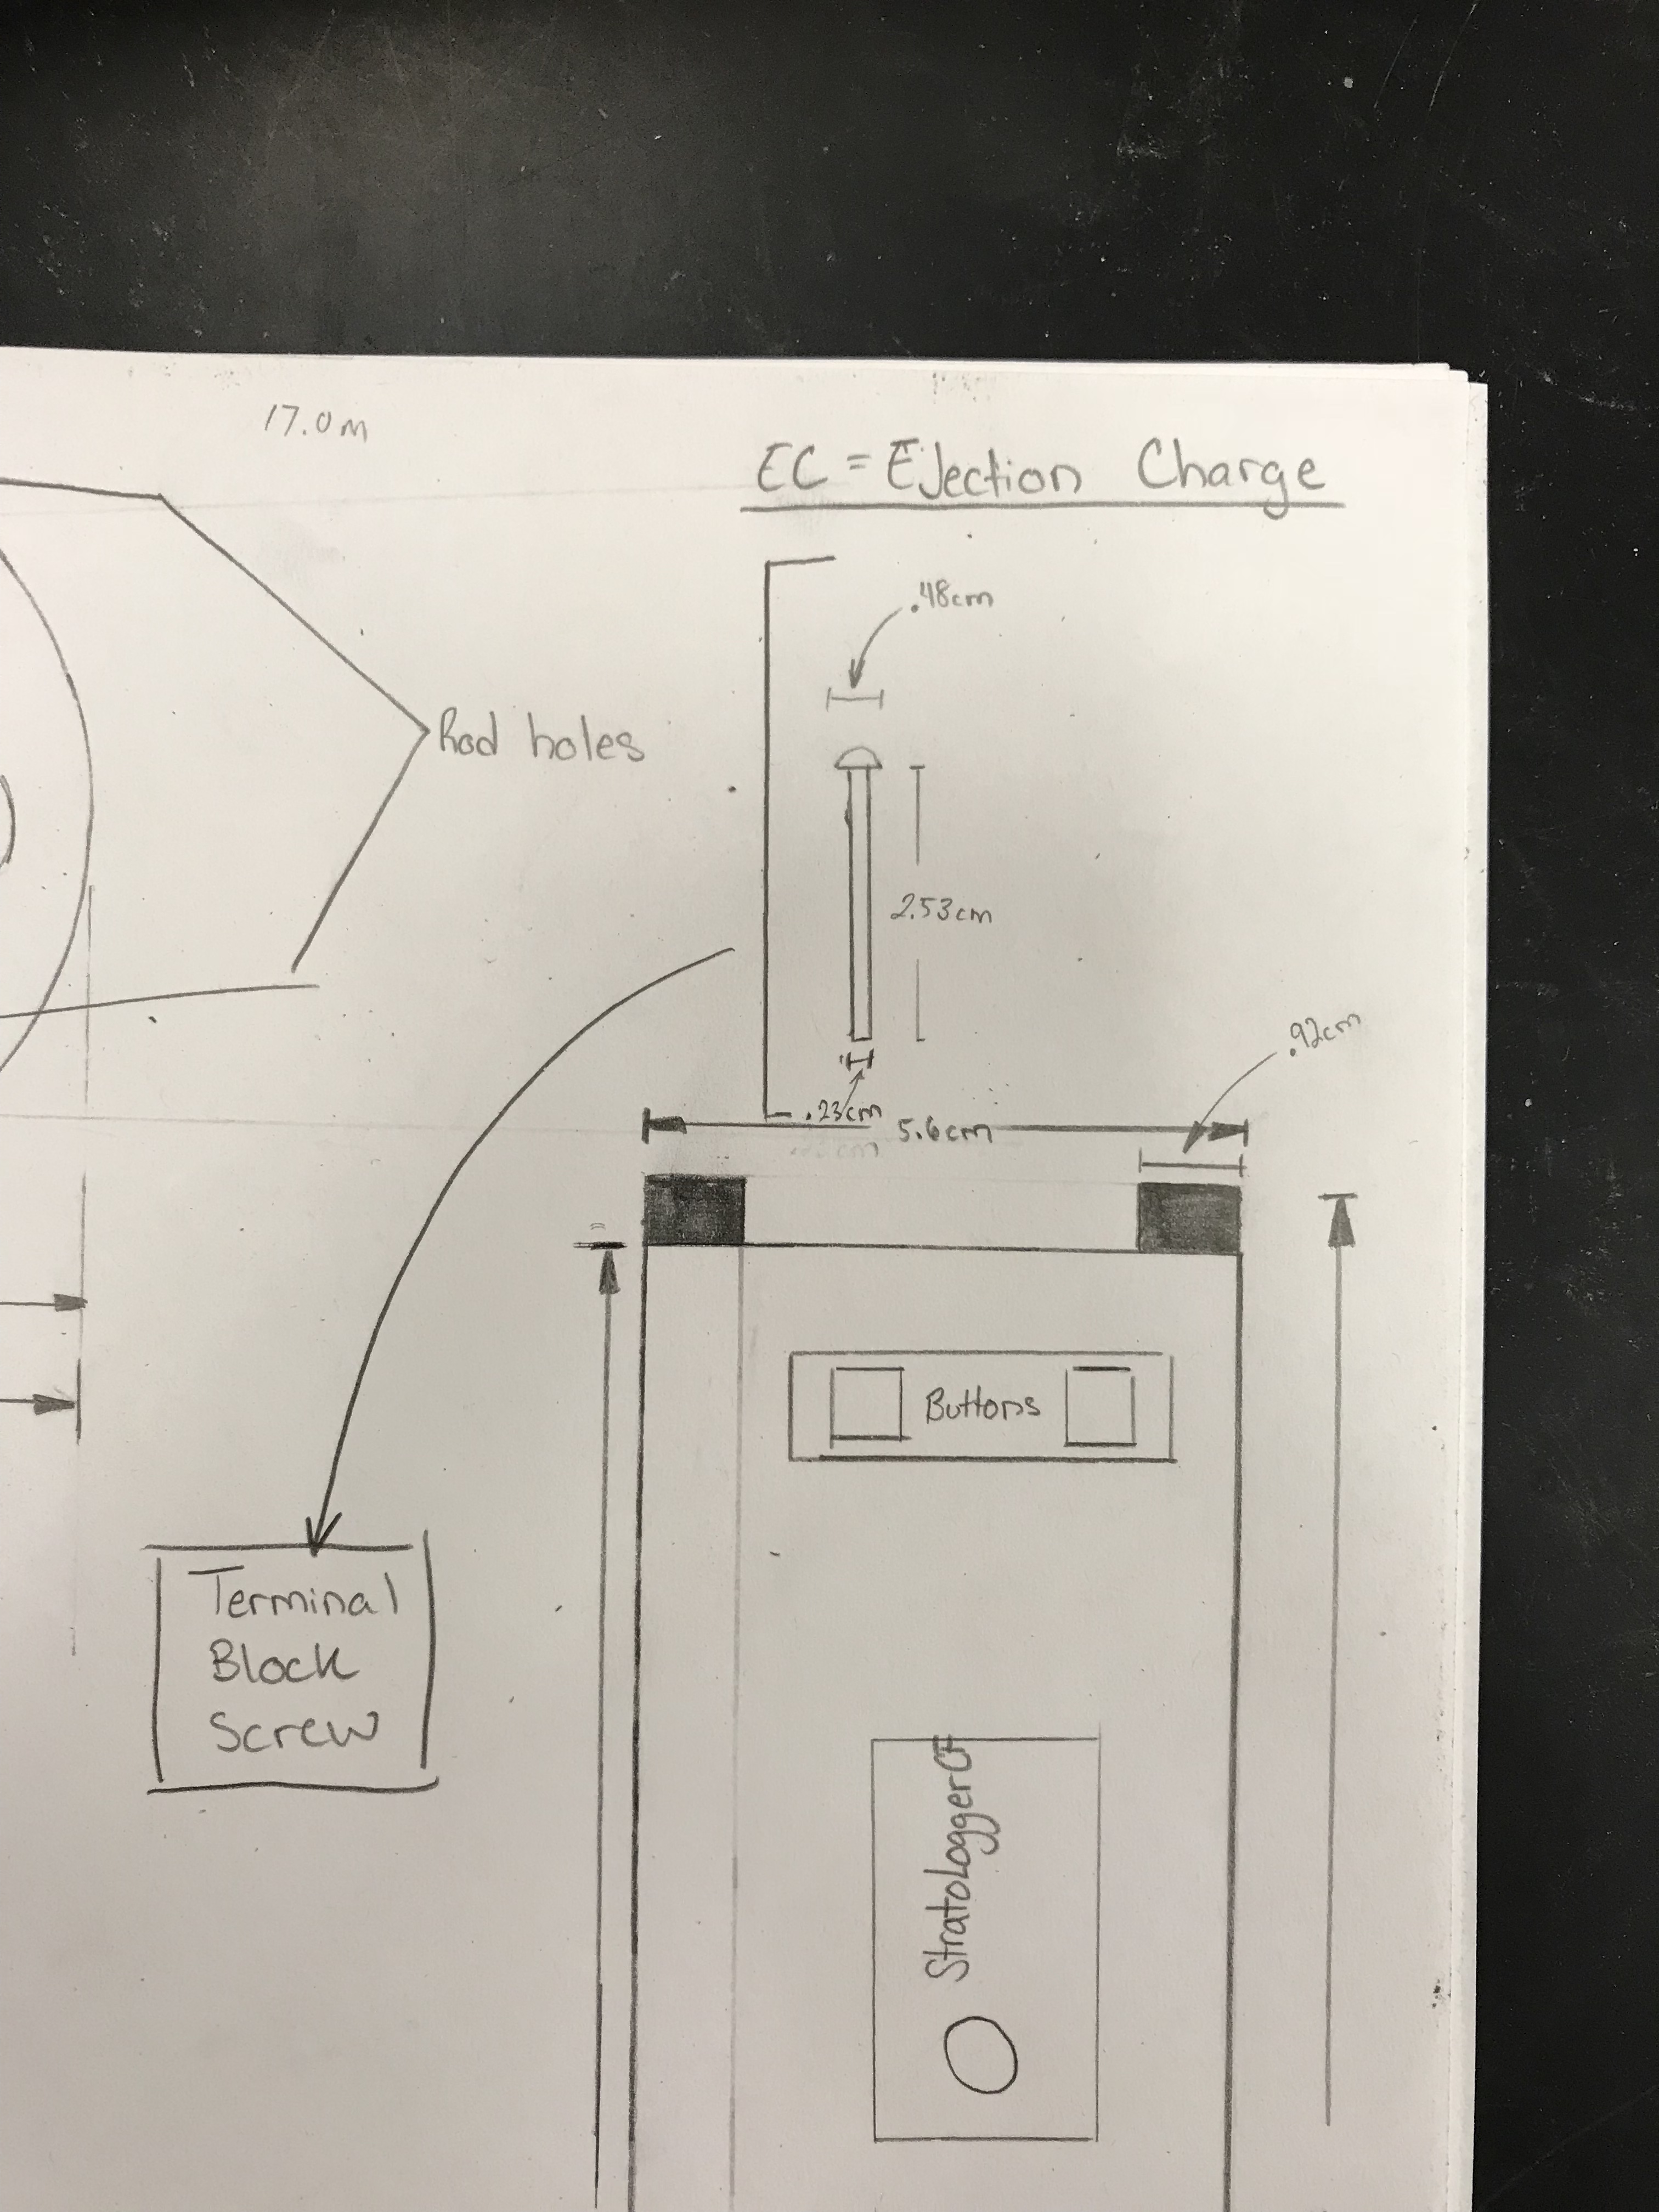 17.0m
EC = Ejection Charge
.48cm
Rod holes
2.53cm
.92cm
.23cm
5.6cm
Buttons
Terminal
Block
Screw
StratologgerCF